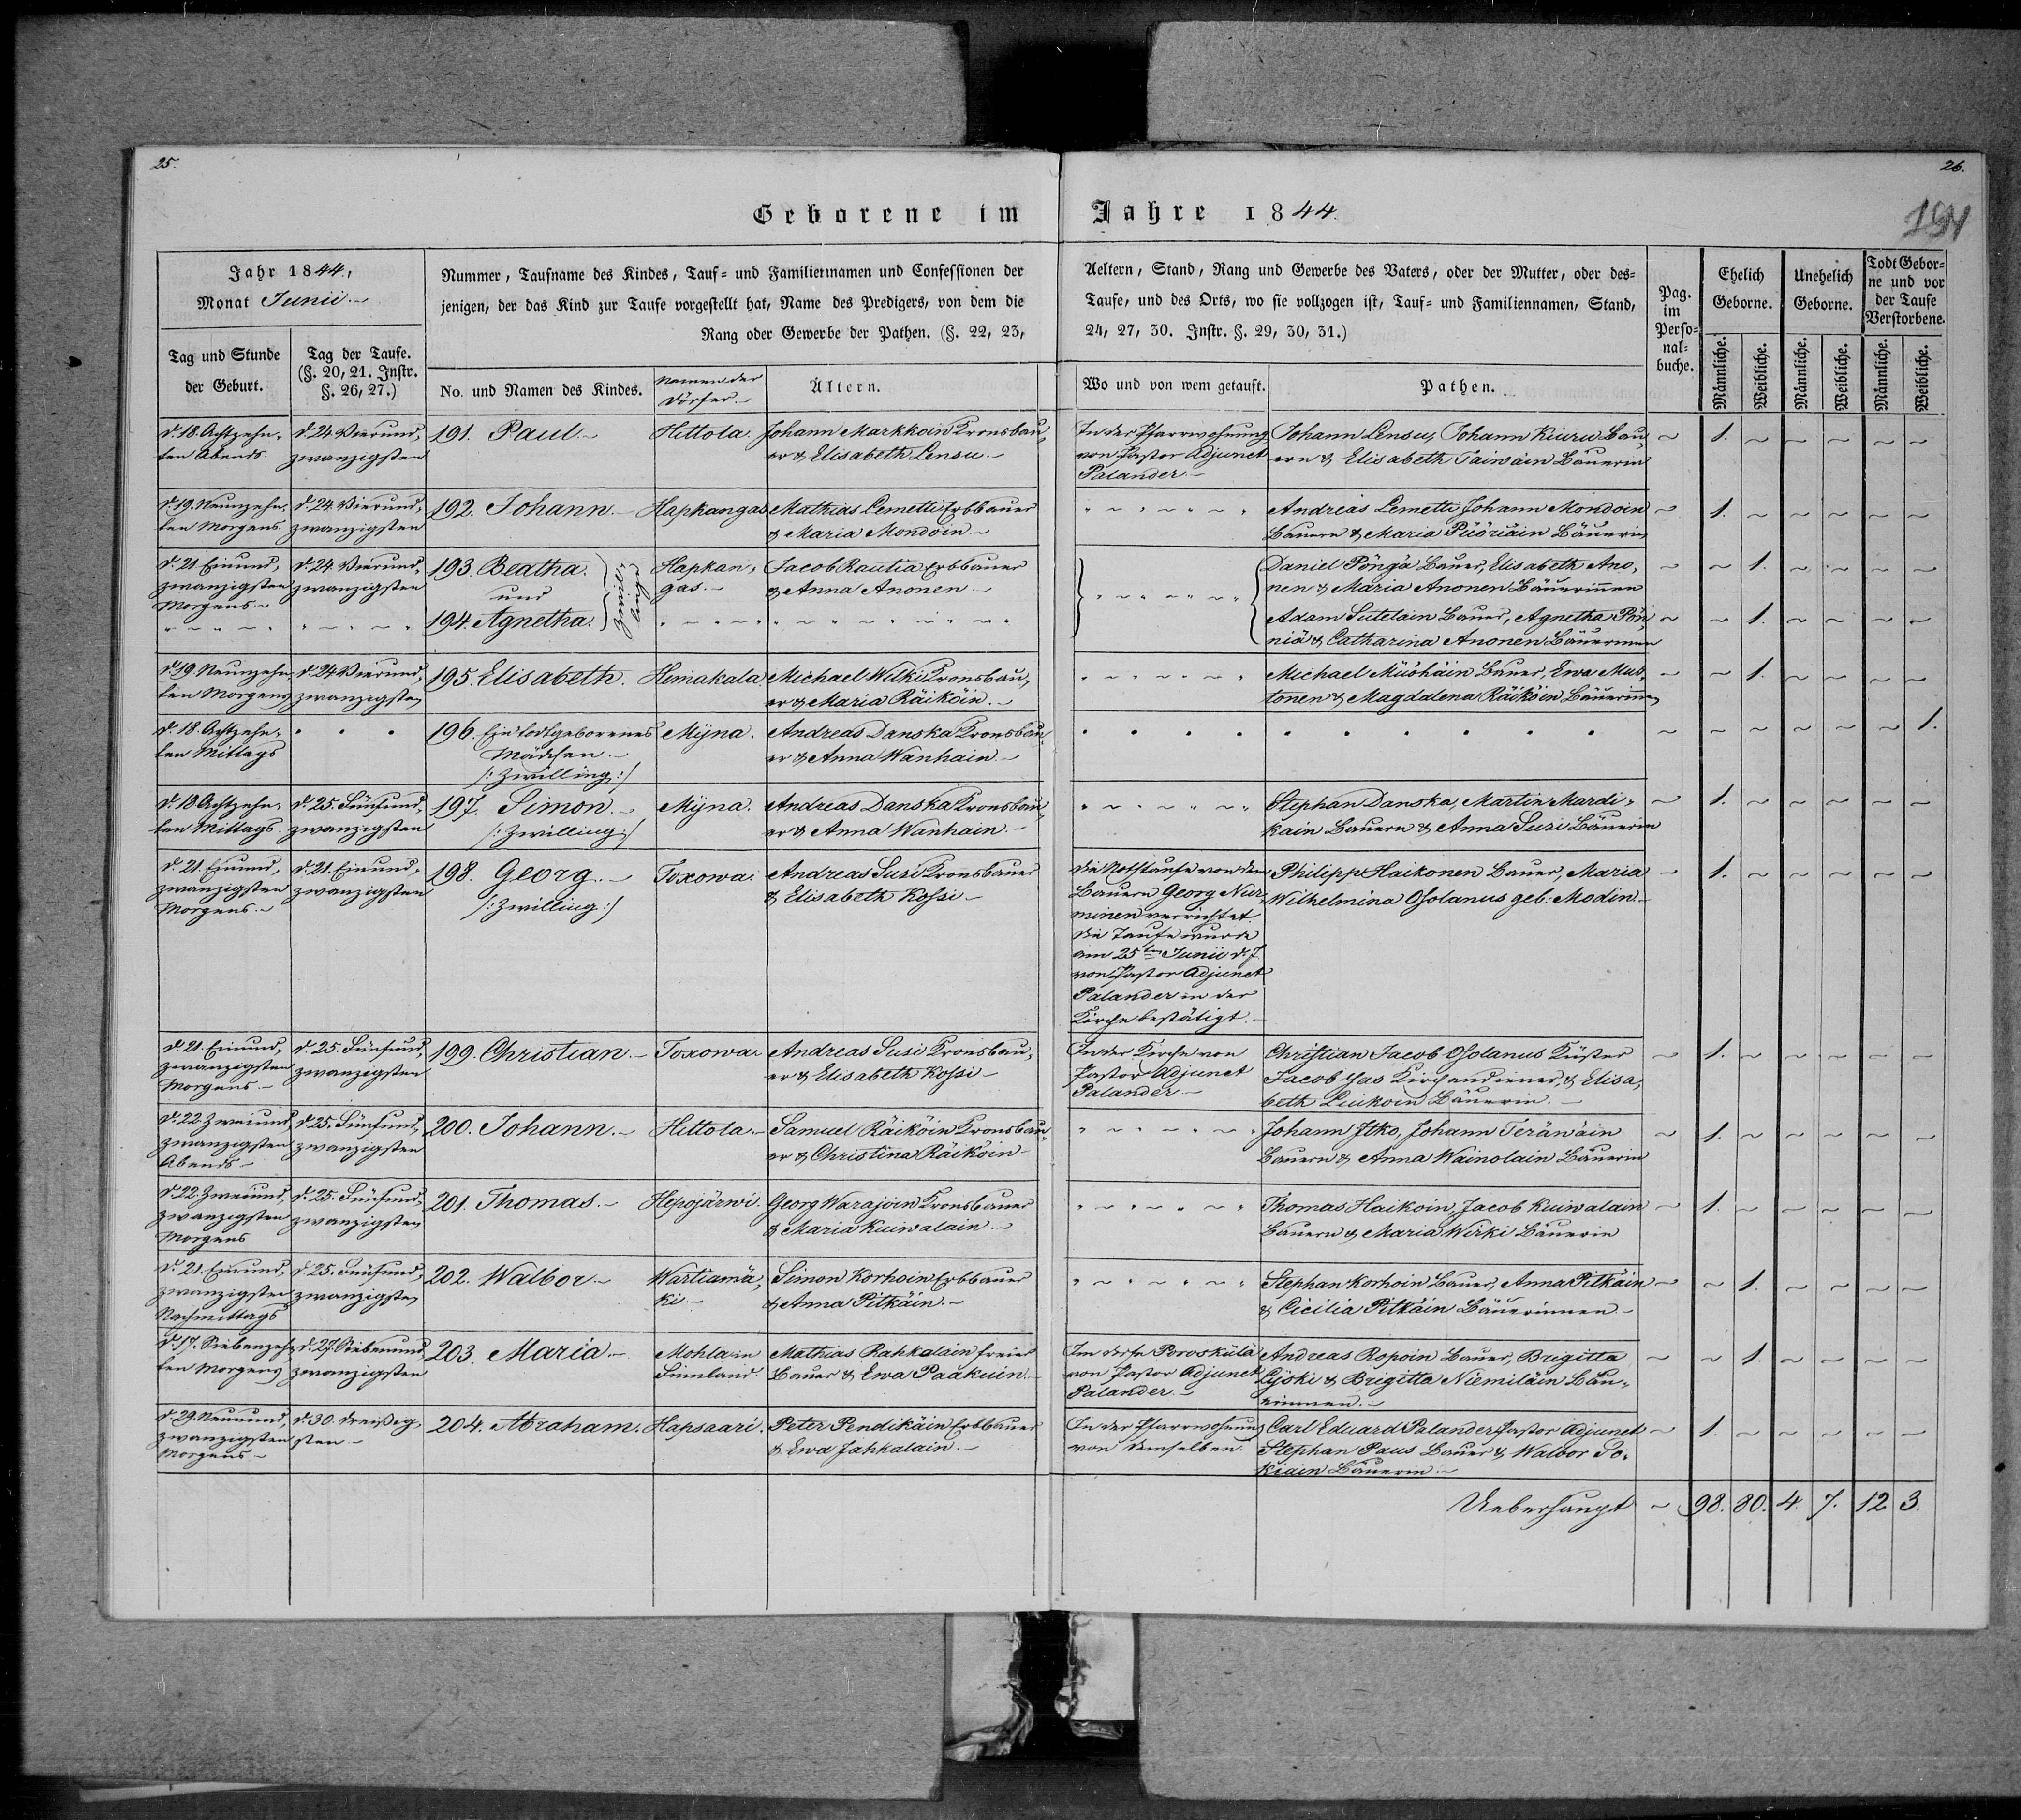 25.
26.
194
Geborene im Jahre 1844.
Jahr 1844,
Monat Junii.
Nummer, Taufname des Kindes, Tauf- und Familiennamen und Confessionen der
jenigen, der das Kind zur Taufe vorgestellt hat, Name des Predigers, von dem die
Rang oder Gewerbe der Pathen. (§. 22, 23,
Aeltern, Stand, Rang und Gewerbe des Vaters, oder der Mutter, oder des-
Taufe, und des Orts, wo sie vollzogen ist, Tauf- und Familiennamen, Stand,
24, 27, 30. Instr. §. 29, 30, 31.)
Pag. im Perso- nal- buche.
Ehelich Geborne.
Unehelich Geborne.
Todt Gebor- ne und vor der Taufe Verstorbene.
Tag und Stunde der Geburt.
Tag der Taufe. (§. 20, 21. Instr. §. 26, 27.)
No. und Namen des Kindes.
Namen der Dörfer.
Ältern.
Wo und von wem getauft.
Pathen.
Männliche. Weibliche. Männliche. Weibliche. Männliche. Weibliche.
d. 18. Achtzehn-
ten Abends.
d. 24. Vierund-
zwanzigsten
191. Paul
Hittola.
Johann Markkoin Kronsbau-
er & Elisabeth Lensu.
In der Pfarrwohnung
von Pastor Adjunct
Palander
Johann Lensu, Johann Kiuru Bau
ern & Elisabeth Taiwain Bäuerin
1.
d. 19. Neunzehn-
ten Morgens
d. 24. Vierund-
zwanzigsten
192. Johann.
Hapkangas
Mathias Lemetti Erbbauer
& Maria Mondoin
Andreas Lemetti Johann Mondoin
Bauern & Maria Püöriäin Bäuerin
1.
d. 21 Einund-
zwanzigsten
Morgens.
d. 24. Vierund-
zwanzigsten
193. Beatha.
und
194. Agnetha.
Zwillinge
Hapkan-
gas.
Jacob Rautia Erbbauer
& Anna Anonen
Daniel Pöngä Bauer, Elisabeth Ano-
nen & Maria Anonen Bäuerinnen
1.
Adam Sutelain Bauer, Agnetha Pön-
niä & Catharina Anonen Bäuerinnen
1.
d. 19. Neunzehn-
ten Morgens
d. 24 Vierund-
zwanzigsten
195. Elisabeth.
Himakala
Michael Wilki Kronsbau-
er & Maria Räiköin.
Michael Müöhäin Bauer, Ewa Mus-
tonen & Magdalena Räiköin Bäuerinnen
1.
d. 18. Achtzehn-
ten Mittags
196. Ein todtgeborenes
Mädchen.
/: Zwilling :/
Mijna.
Andreas Danska Kronsbau-
er & Anna Wanhain
1.
d. 18 Achtzehn-
ten Mittags.
d. 25. Fünfund-
zwanzigsten
197. Simon.
/: Zwilling :/
Mijna.
Andreas Danska Kronsbau-
er & Anna Wanhain.
Stephan Danska, Martin Mardi-
kain Bauern & Anna Susi Bäuerin
1.
d. 21. Einund-
zwanzigsten
Morgens.
d. 21. Einund-
zwanzigsten
198. Georg.
/: Zwilling :/
Toxowa.
Andreas Susi Kronsbauer
& Elisabeth Kossi
Die Nothtaufe von dem
Bauern Georg Nur-
minen verrichtet.
Die Taufe wurde
am 25ten Junii d. J.
von Pastor Adjunct
Palander in der
Kirche bestätigt.
Philipp Haikonen Bauer, Maria
Wilhelmina Osolanus geb: Modin
1.
d. 21. Einund-
zwanzigsten
Morgens
d. 25. Fünfund-
zwanzigsten
199. Christian.
Toxowa
Andreas Susi Kronsbau-
er & Elisabeth Kossi
In der Kirche von
Pastor Adjunct
Palander
Christian Jacob Osolanus Küster
Jacob Yas Kirchendiener, & Elisa-
beth Liukoin Bäuerin.
1.
d. 22. Zweiund
zwanzigsten
Abends
d. 25. Fünfund-
zwanzigsten
200. Johann.
Hittola
Samuel Räiköin Kronsbau-
er & Christina Räiköin
Johann Itko, Johann Teräwäin
Bauern & Anna Wainolain Bäuerin
1.
d. 22. Zweiund-
zwanzigsten
Morgens
d. 25. Fünfund-
zwanzigsten
201. Thomas.
Hepojärwi.
Georg Warajoin Kronsbauer
& Maria Kuiwalain.
Thomas Haikoin, Jacob Kuiwalain
Bauern & Maria Wirki Bäuerin
1.
d. 21. Einund-
zwanzigsten
Nachmittags
d. 25. Fünfund-
zwanzigsten
202. Walbor
Wartiamä-
ki.
Simon Korhoin Erbbauer
& Anna Pitkäin.
Stephan Korhoin Bauer, Anna Pitkäin
& Cicilia Pitkäin Bäuerinnen
1.
d. 17. Siebenzehn
ten Morgens
d. 27. Siebenund
zwanzigsten
203. Maria
Mohla in
Finnland.
Mathias Rahkalain freier
Bauer & Ewa Paakuin.
Im Dorfe Porosküla
von Pastor Adjunct
Palander.
Andreas Ropoin Bauer, Brigitta
Lijski & Brigitta Niemiläin Bäu-
rinnen.
1.
d. 29. Neunund
zwanzigsten
Morgens
d. 30. dreißig-
sten
204. Abraham.
Hapsaari.
Peter Pendikäin Erbbauer
& Ewa Jahkalain.
In der Pfarrwohnung
von demselben.
Carl Eduard Palander Pastor Adjunct
Stephan Paus Bauer & Walbor So-
kiäin Bäuerin
1.
Ueberhaupt 98. 80. 4. 7. 12 3.